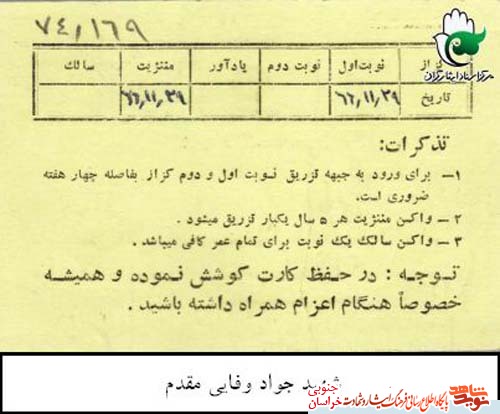 ۷۴/۱۶۹
مرکز اسناد ایثارگران
کزاز نوبت اول نوبت دوم یادآور مننژیت سالک
تاریخ ۶۶/۱۱/۲۹ ۶۶/۱۱/۲۹
تذکرات:
۱- برای ورود به جبهه تزریق نوبت اول و دوم کزاز بفاصله چهار هفته
ضروری است.
۲- واکسن مننژیت هر ۵ سال یکبار تزریق میشود.
۳- واکسن سالک یک نوبت برای تمام عمر کافی میباشد.
توجه: در حفظ کارت کوشش نموده و همیشه
خصوصاً هنگام اعزام همراه داشته باشید.
شهید جواد وفایی مقدم
پایگاه اطلاع رسانی فرهنگ ایثار و شهادت خراسان جنوبی
نوید شاهد